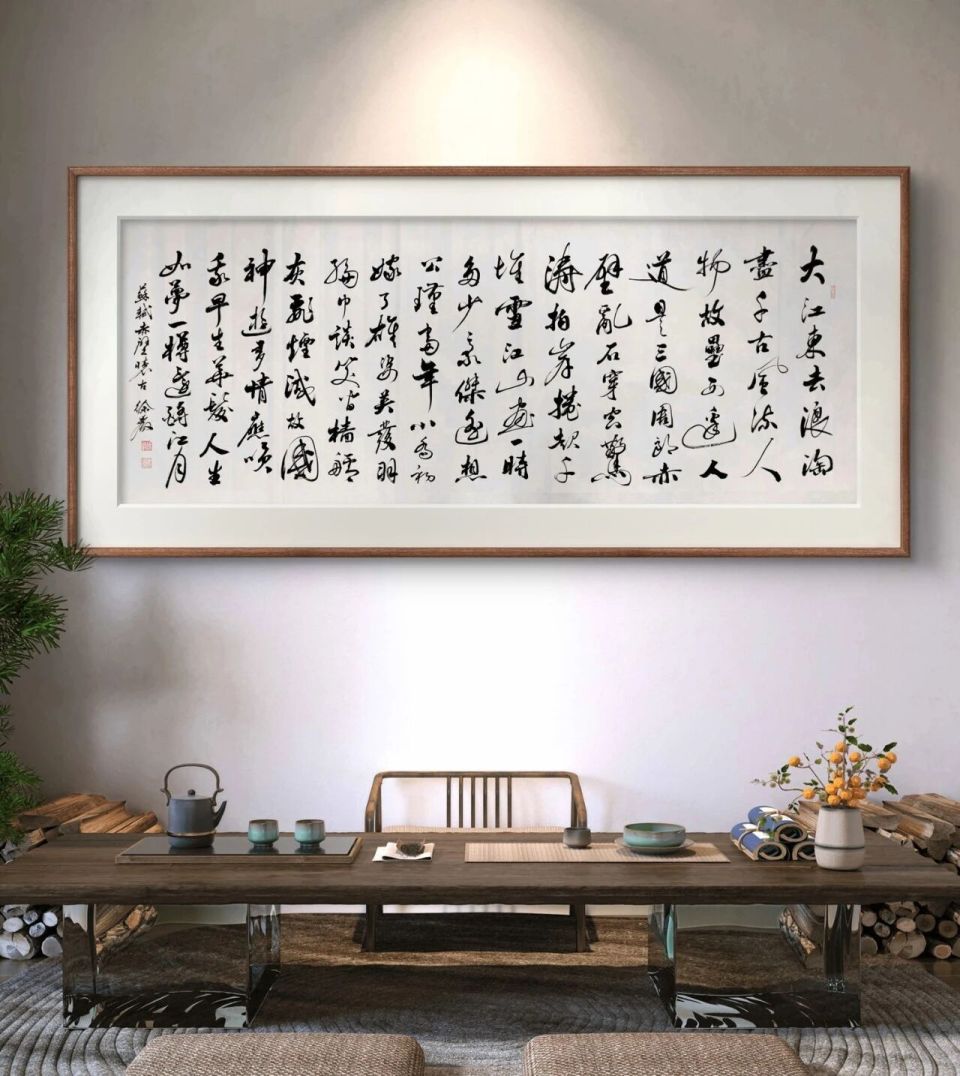 大江東去浪淘
盡千古風流人
物故壘西邊人
道是三國周郎赤
壁亂石穿空驚
濤拍岸捲起千
堆雪江山如畫一時
多少豪傑遙想
公瑾當年小喬初
嫁了雄姿英發羽
綸巾談笑間檣艣
灰飛煙滅故國
神遊多情應笑
我早生華髮人生
如夢一樽還酹江月
蘇軾赤壁懷古